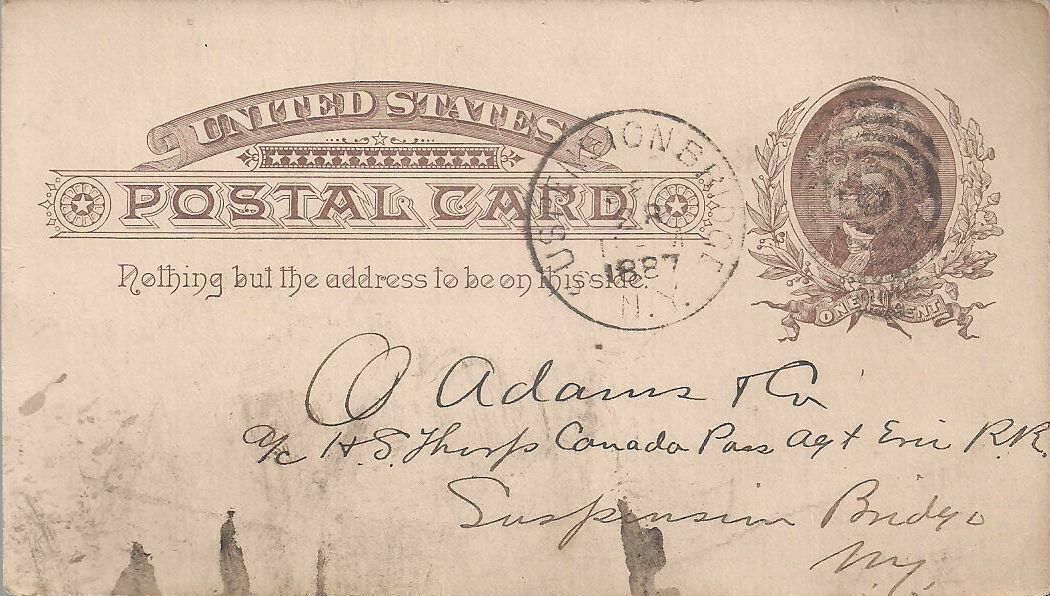 UNITED STATES
POSTAL CARD
Nothing but the address to be on this side.
SUSPENSION BRIDGE
1887
N.Y.
ONE CENT
O Adams & Co
a/c H.S. Thorp Canada Pass Agt Erie R.R.
Suspension Bridge
N.Y.